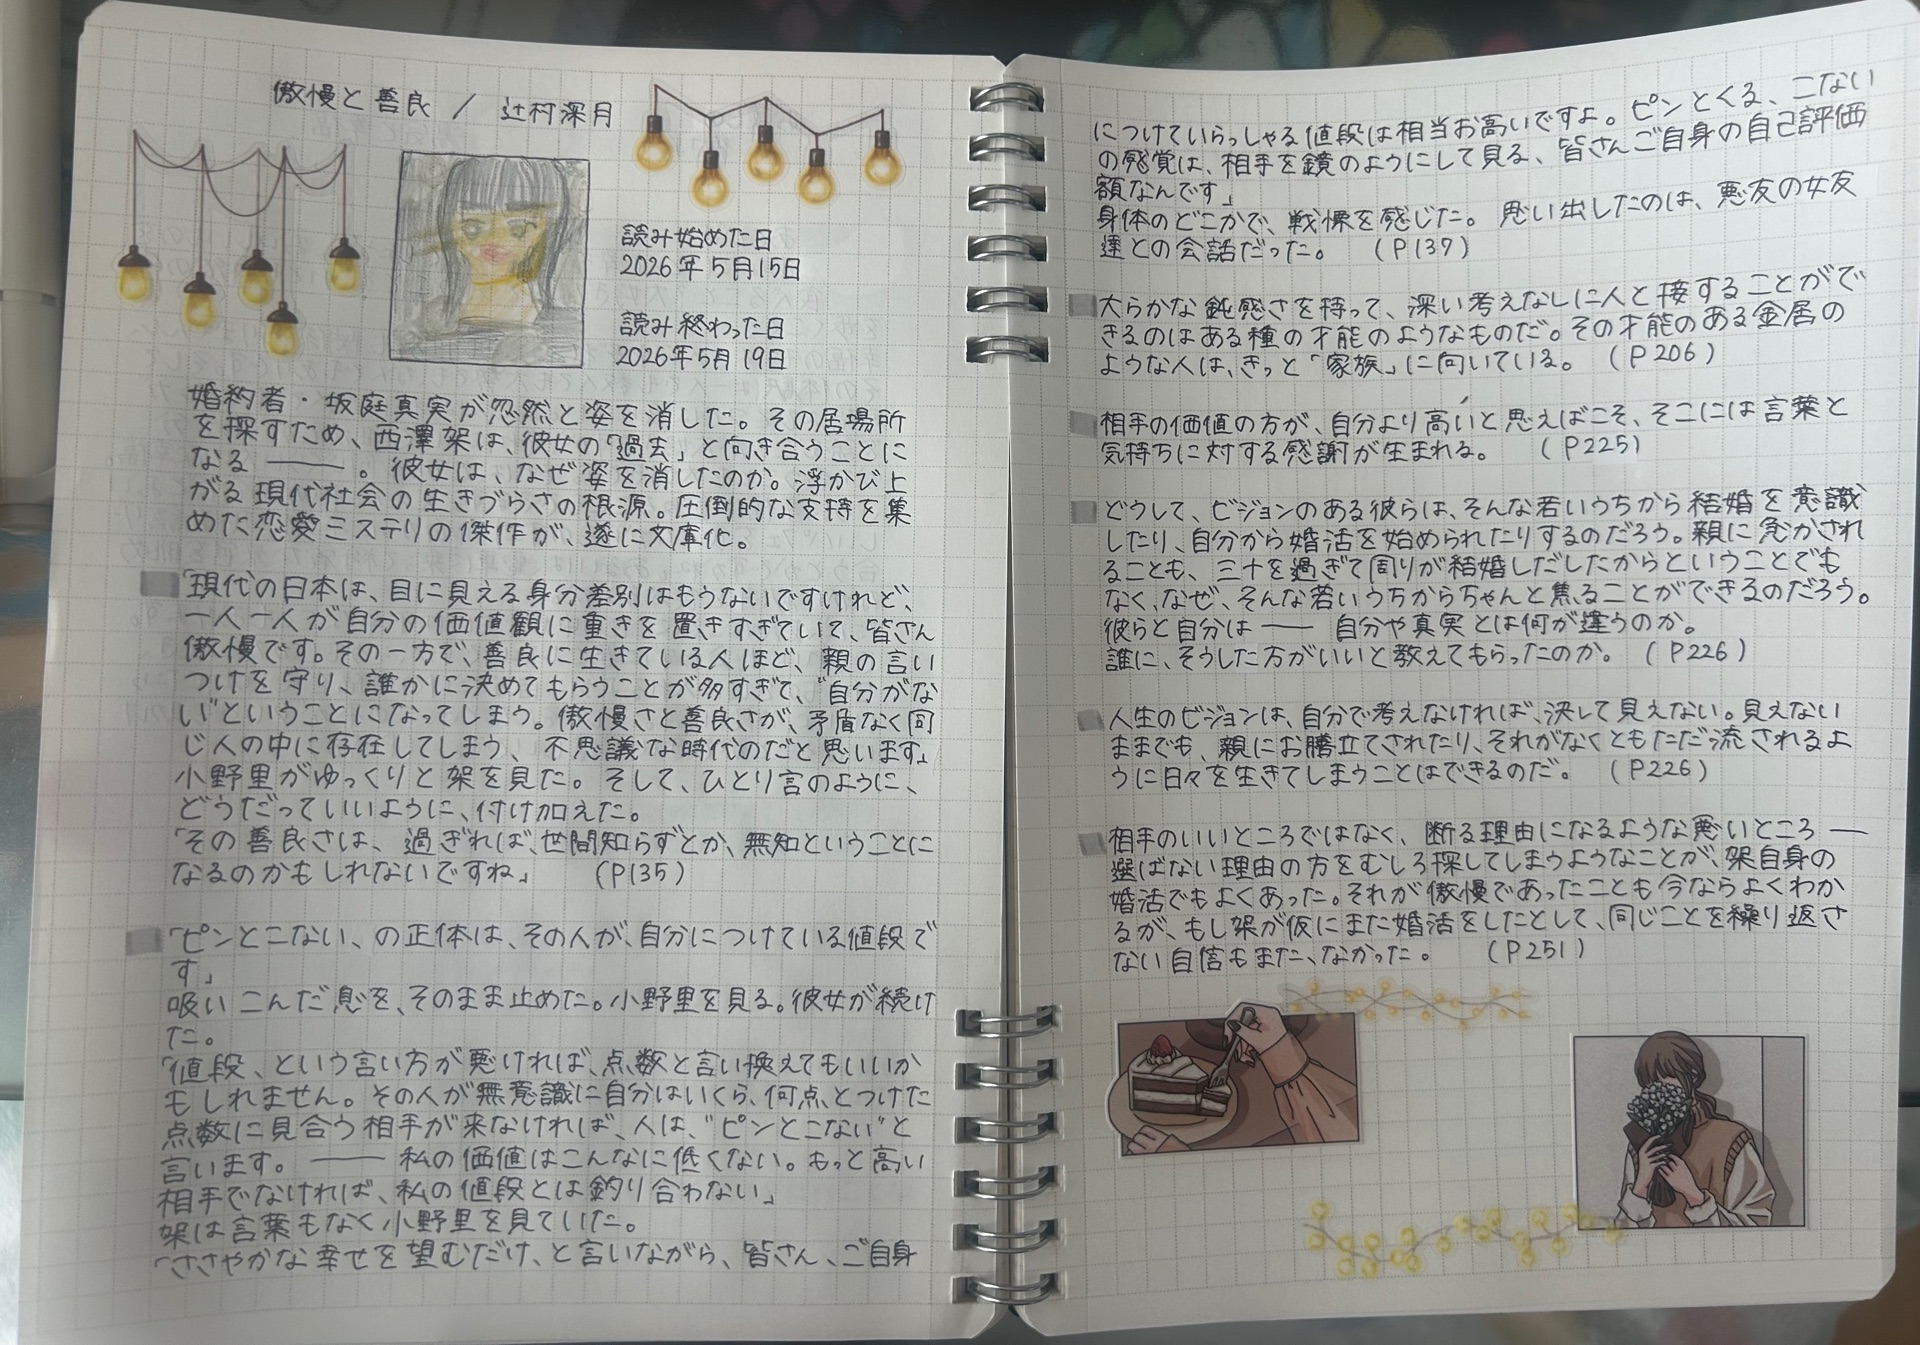 傲慢と善良 / 辻村深月
読み始めた日
2026年5月15日
読み終わった日
2026年5月19日
婚約者・坂庭真実が忽然と姿を消した。その居場所
を探すため、西澤架は、彼女の「過去」と向き合うことに
なる ――。彼女は、なぜ姿を消したのか。浮かび上
がる現代社会の生きづらさの根源。圧倒的な支持を集
めた恋愛ミステリの傑作が、遂に文庫化。
「現代の日本は、目に見える身分差別はもうないですけれど、
一人一人が自分の価値観に重きを置きすぎていて、皆さん
傲慢です。その一方で、善良に生きている人ほど、親の言い
つけを守り、誰かに決めてもらうことが多すぎて、“自分がな
い”ということになってしまう。傲慢さと善良さが、矛盾なく同
じ人の中に存在してしまう、不思議な時代のだと思います」
小野里がゆっくりと架を見た。そして、ひとり言のように、
どうだっていいように、付け加えた。
「その善良さは、過ぎれば、世間知らずとか、無知ということに
なるのかもしれないですね」 (P135)
「ピンとこない、の正体は、その人が、自分につけている値段で
す」
吸いこんだ息を、そのまま止めた。小野里を見る。彼女が続け
た。
「値段、という言い方が悪ければ、点数と言い換えてもいいか
もしれません。その人が無意識に自分はいくら、何点とつけた
点数に見合う相手が来なければ、人は、“ピンとこない”と
言います。―― 私の価値はこんなに低くない。もっと高い
相手でなければ、私の値段とは釣り合わない」
架は言葉もなく小野里を見ていた。
「ささやかな幸せを望むだけ、と言いながら、皆さん、ご自身
につけていらっしゃる値段は相当お高いですよ。ピンとくる、こない
の感覚は、相手を鏡のようにして見る、皆さんご自身の自己評価
額なんです」
身体のどこかで、戦慄を感じた。思い出したのは、悪友の女友
達との会話だった。 (P137)
大らかな鈍感さを持って、深い考えなしに人と接することがで
きるのはある種の才能のようなものだ。その才能のある金居の
ような人は、きっと「家族」に向いている。 (P206)
相手の価値の方が、自分より高いと思えばこそ、そこには言葉と
気持ちに対する感謝が生まれる。 (P225)
どうして、ビジョンのある彼らは、そんな若いうちから結婚を意識
したり、自分から婚活を始められたりするのだろう。親に急かされ
ることも、三十を過ぎて周りが結婚しだしたからということでも
なく、なぜ、そんな若いうちからちゃんと焦ることができるのだろう。
彼らと自分は ―― 自分や真実とは何が違うのか。
誰に、そうした方がいいと教えてもらったのか。 (P226)
人生のビジョンは、自分で考えなければ、決して見えない。見えない
ままでも、親にお膳立てされたり、それがなくともただ流されるよ
うに日々を生きてしまうことはできるのだ。 (P226)
相手のいいところではなく、断る理由になるような悪いところ ―
選ばない理由の方をむしろ探してしまうようなことが、架自身の
婚活でもよくあった。それが傲慢であったことも今ならよくわか
るが、もし架が仮にまた婚活をしたとして、同じことを繰り返さ
ない自信もまた、なかった。 (P251)